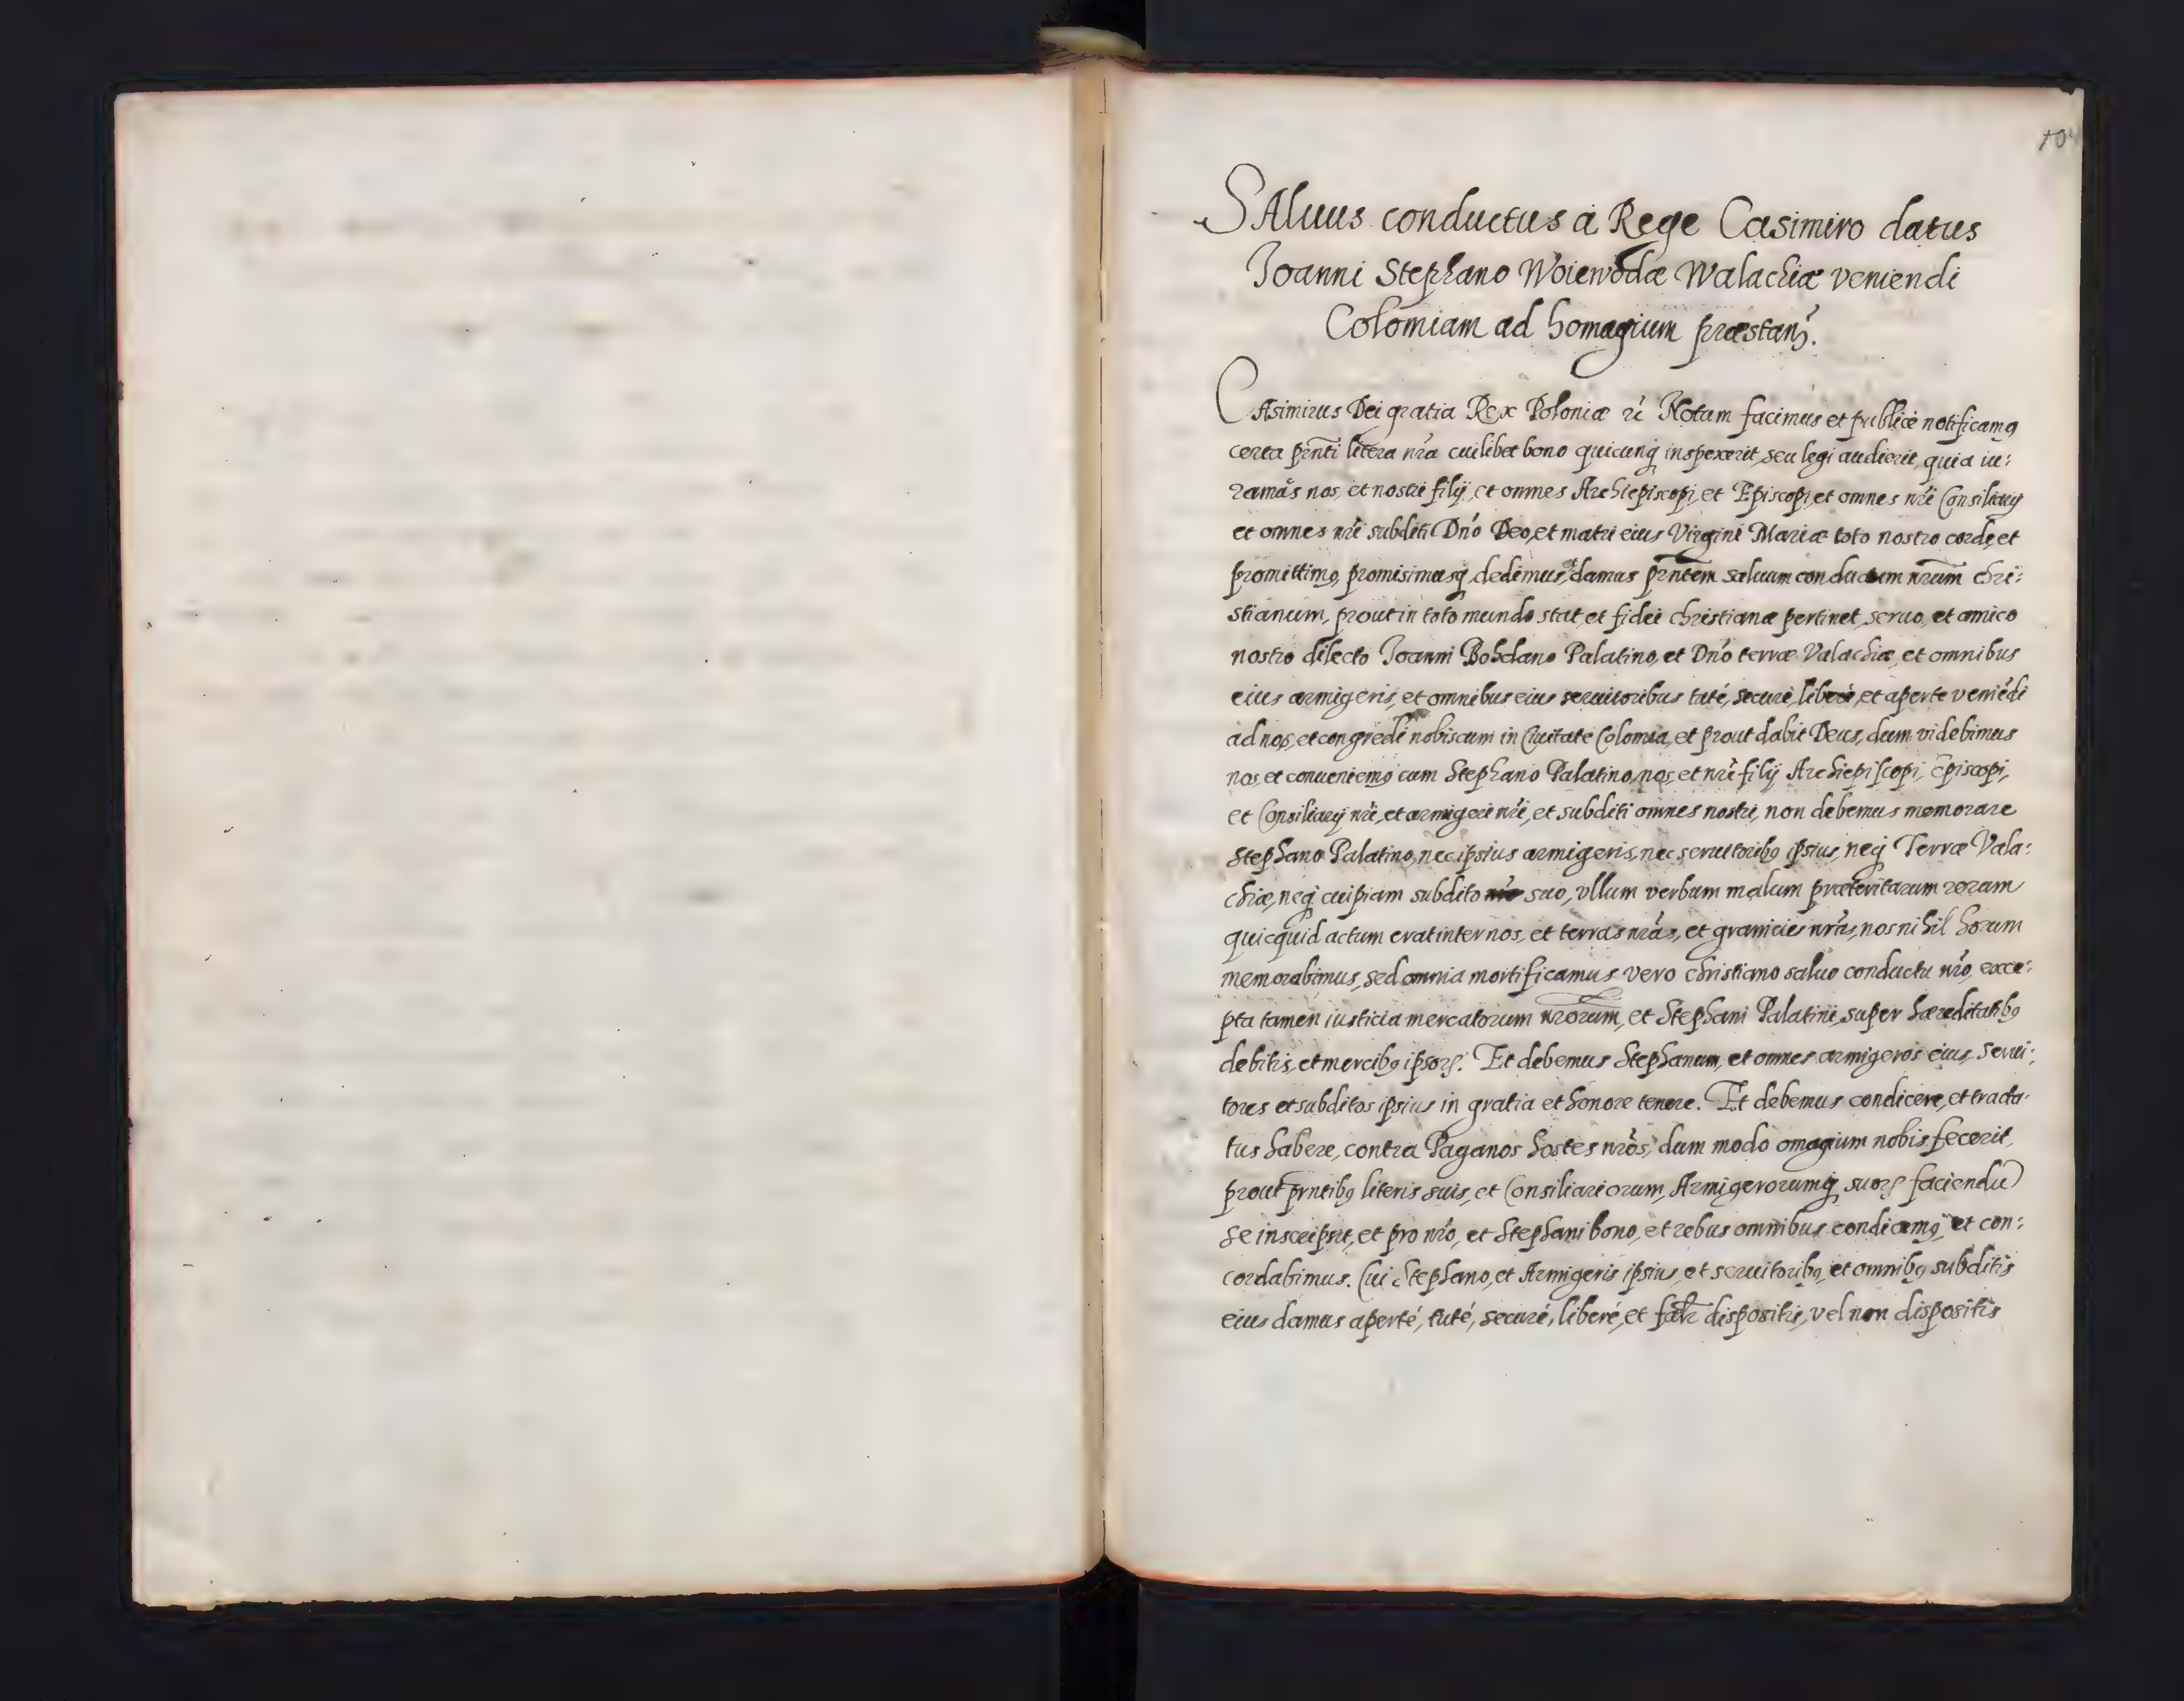 10
SAluus conductus à Rege Casimiro datus
Joanni Stephano Woiewodæ Walachiæ veniendi
Colomiam ad homagium præstanꝫ.
CAsimirus Dei gratia Rex Poloniæ ꝛc̃ Notum facimus et publicè notificamꝰ
certa pñti litera nr̃a cuilibet bono quicunq̢ inspexerit, seu legi audierit, quia iu:
ramꝰs nos, et nostri filij, et omnes Archiepiscopi, et Episcopi, et omnes nr̃i Consiliarij
et omnes nr̃i subditi Dn̄o Deo, et matri eius Virgini Mariæ toto nostro corde, et
promittimꝰ, promisimusq̢, dedimus, et damus pr̃ntem saluum conductum nr̃um chri:
stianum, prout in toto mundo stat, et fidei christianæ pertinet, seruo, et amico
nostro dilecto Joanni Bohdano Palatino, et Dn̄o terræ Valachiæ, et omnibus
eius armigeris, et omnibus eius seruitoribus tutè, securè, liberè, et apertè veniẽdi
ad nos, et congredi nobiscum in Ciuitate Colomia, et prout dabit Deus, dum videbimus
nos, et conueniemꝰ cum Stephano Palatino, nos, et nr̃i filij Archiepiscopi, Episcopi,
et Consiliarij nr̃i, et armigeri nr̃i, et subditi omnes nostri, non debemus memorare
Stephano Palatino, nec ipsius armigeris, nec seruitoribꝰ ipsius, neq̢ Terræ Vala:
chiæ, neq̢ cuipiam subdito suo, vllum verbum malum præteritarum rerum
quicquid actum erat inter nos, et terras nr̃as, et granicies nr̃as, nos nihil horum
memorabimus, sed omnia mortificamus vero christiano saluo conductu nr̃o, exce:
pta tamen iusticia mercatorum nr̃orum, et Stephani Palatini, super hæreditatibꝰ
debitis, et mercibꝰ ipsoꝝ. Et debemus Stephanum, et omnes armigeros eius, serui:
tores et subditos ipsius in gratia et honore tenere. Et debemus condicere, et tracta:
tus habere, contra Paganos hostes nr̃os, dum modo omagium nobis fecerit,
prout pr̃ntibꝰ literis suis, et Consiliariorum, Armigerorumq̢ suoꝝ faciendũ
se inscripsit, et pro nr̃o, et Stephani bono, et rebus omnibus condicemꝰ, et con:
cordabimus. Cui Stephano, et Armigeris ipsius, et seruitoribꝰ, et omnibꝰ subditis
eius damus apertè, tutè, securè, liberè, et dispositis, vel non dispositis